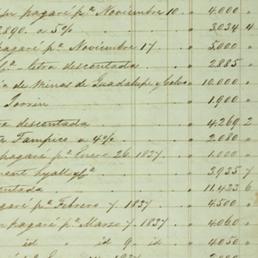 pagaré pª Noviembre 10 .. 4,000
2890. a 5% .. 3,034 4
pagaré pª Noviembre 17 .. 3,000
letra descontada .. 2885
a de Minas de Guadalupe y Calvo .. 10,000
.. 1,900
descontada .. 4,269 2
Tampico a 4% .. 2,080
pagaré pª Enero 26. 1837 .. 1,000
Hyall .. 3,935 7
.. 11,433 6
pagaré pª Febrero 7. 1837 .. 4,500
pagaré pª Marzo 7. 1837 .. 4,060
id " id 9. id .. 4,050